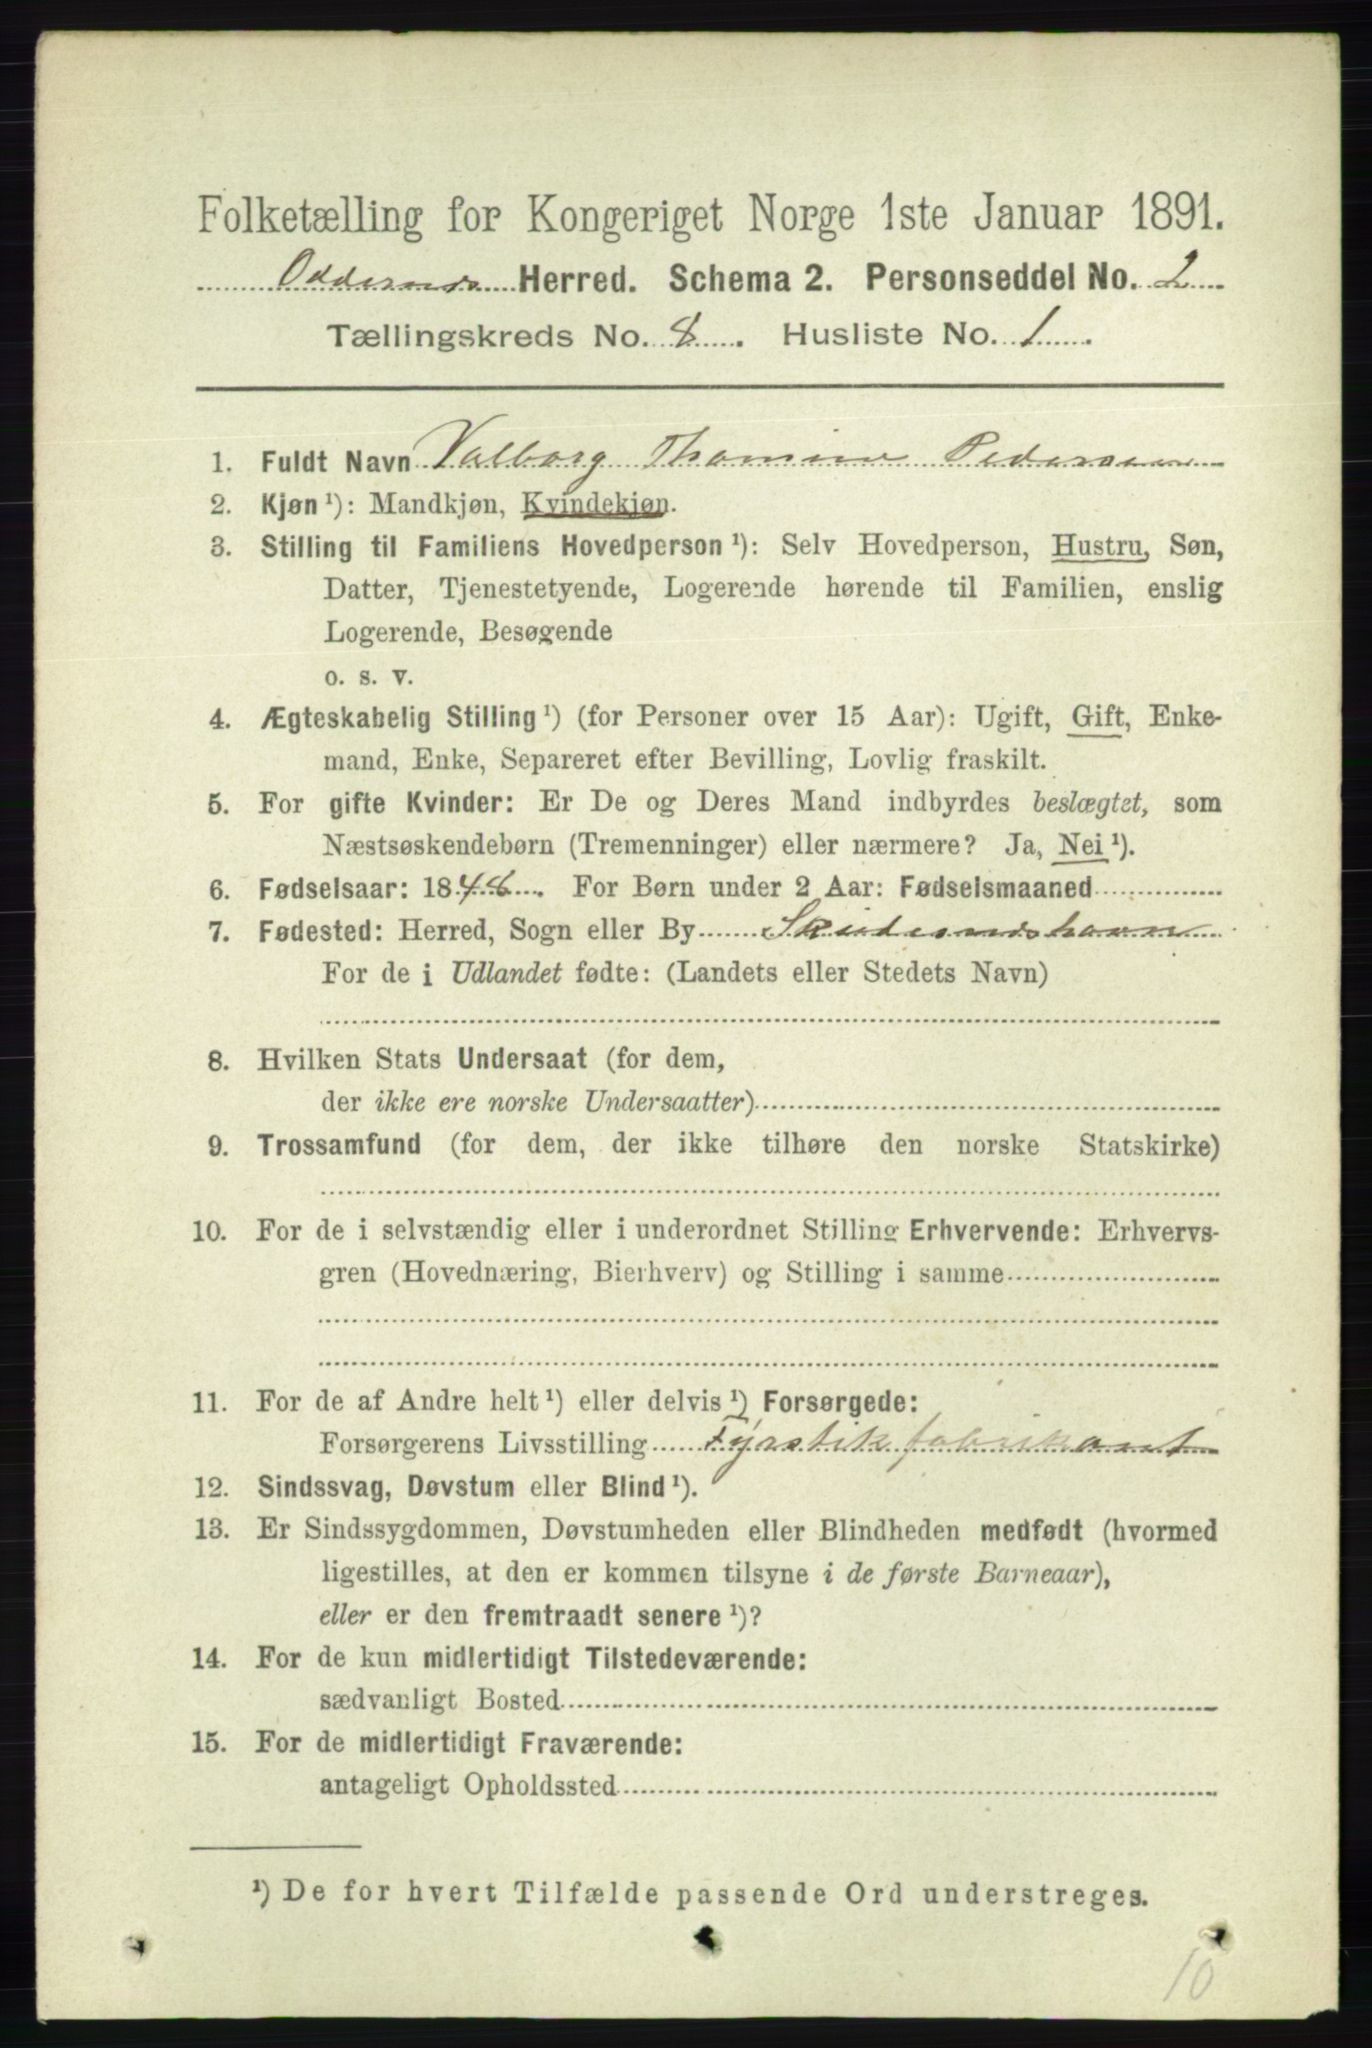 Folketælling for Kongeriget Norge 1ste Januar 1891.
Oddernes Herred. Schema 2. Personseddel No. 2
Tællingskreds No. 8. Husliste No. 1.
1. Fuldt Navn Valborg Thomine Pedersen
2. Kjøn ¹): Mandkjøn, Kvindekjøn.
3. Stilling til Familiens Hovedperson ¹): Selv Hovedperson, Hustru, Søn,
Datter, Tjenestetyende, Logerende hørende til Familien, enslig
Logerende, Besøgende
o. s. v.
4. Ægteskabelig Stilling ¹) (for Personer over 15 Aar): Ugift, Gift, Enke-
mand, Enke, Separeret efter Bevilling, Lovlig fraskilt.
5. For gifte Kvinder: Er De og Deres Mand indbyrdes beslægtet, som
Næstsøskendebørn (Tremenninger) eller nærmere? Ja, Nei ¹).
6. Fødselsaar: 1848. For Børn under 2 Aar: Fødselsmaaned
7. Fødested: Herred, Sogn eller By Skudesneshavn
For de i Udlandet fødte: (Landets eller Stedets Navn)
8. Hvilken Stats Undersaat (for dem,
der ikke ere norske Undersaatter)
9. Trossamfund (for dem, der ikke tilhøre den norske Statskirke)
10. For de i selvstændig eller i underordnet Stilling Erhvervende: Erhvervs-
gren (Hovednæring, Bierhverv) og Stilling i samme
11. For de af Andre helt ¹) eller delvis ¹) Forsørgede:
Forsørgerens Livsstilling Fyrstikfabrikant
12. Sindssvag, Døvstum eller Blind ¹).
13. Er Sindssygdommen, Døvstumheden eller Blindheden medfødt (hvormed
ligestilles, at den er kommen tilsyne i de første Barneaar),
eller er den fremtraadt senere ¹)?
14. For de kun midlertidigt Tilstedeværende:
sædvanligt Bosted
15. For de midlertidigt Fraværende:
antageligt Opholdssted
¹) De for hvert Tilfælde passende Ord understreges.
10